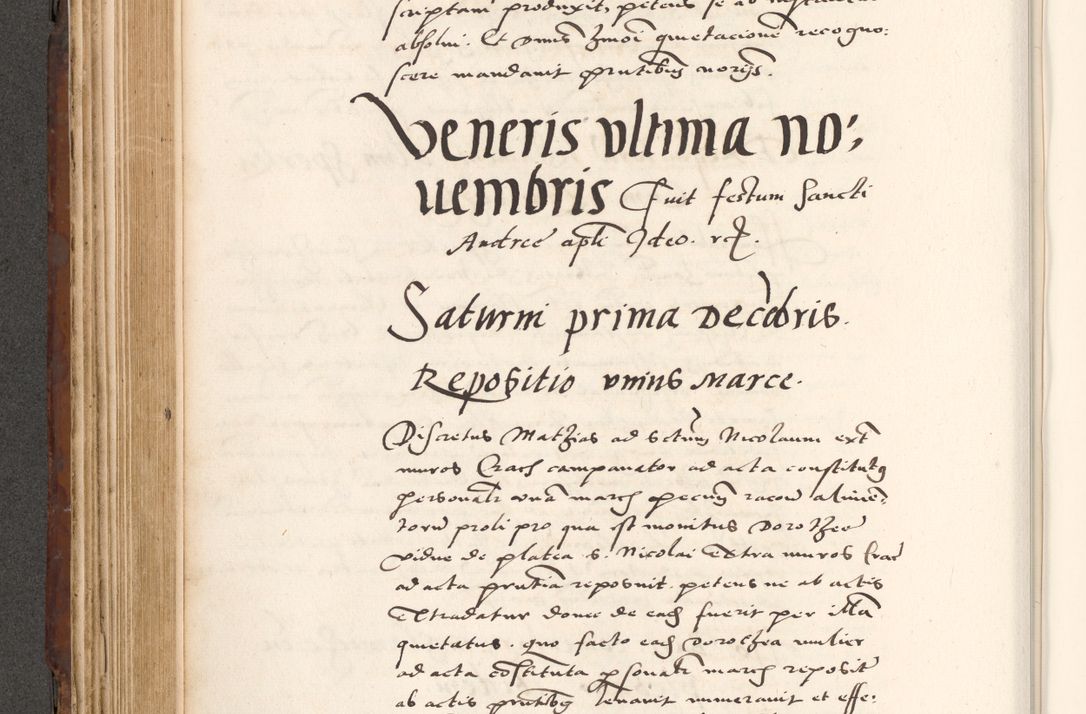 scriptam produxit, petens se ab
absolui. Et Dnus hmoi quietacionē recogno:
scere mandauit pntibus norijs.
Veneris vltima no:
uembris Fuit festum Sancti
Andree apli Ideo. rc.
Saturni prima Decēbris.
Repositio vnius Marce.
Discretus Mathias ad sctum Nicolaum ext
muros Crac campanator ad acta constitutq
personalr vnā marcɧ pecun racōe alimē:
torū proli pro qua est monitus Dorothee
vidue de platea S. Nicolai Extra muros Crac
ad acta pntia reposuit petens ne ab actis
Extradatur donec de eadɧ fuerit per illā
quietatus. quo facto eadɧ Dorothea mulier
ad acta cōstituta psonalr marcɧ reposit
ab actis pntibq leuauit numerauit et effe: